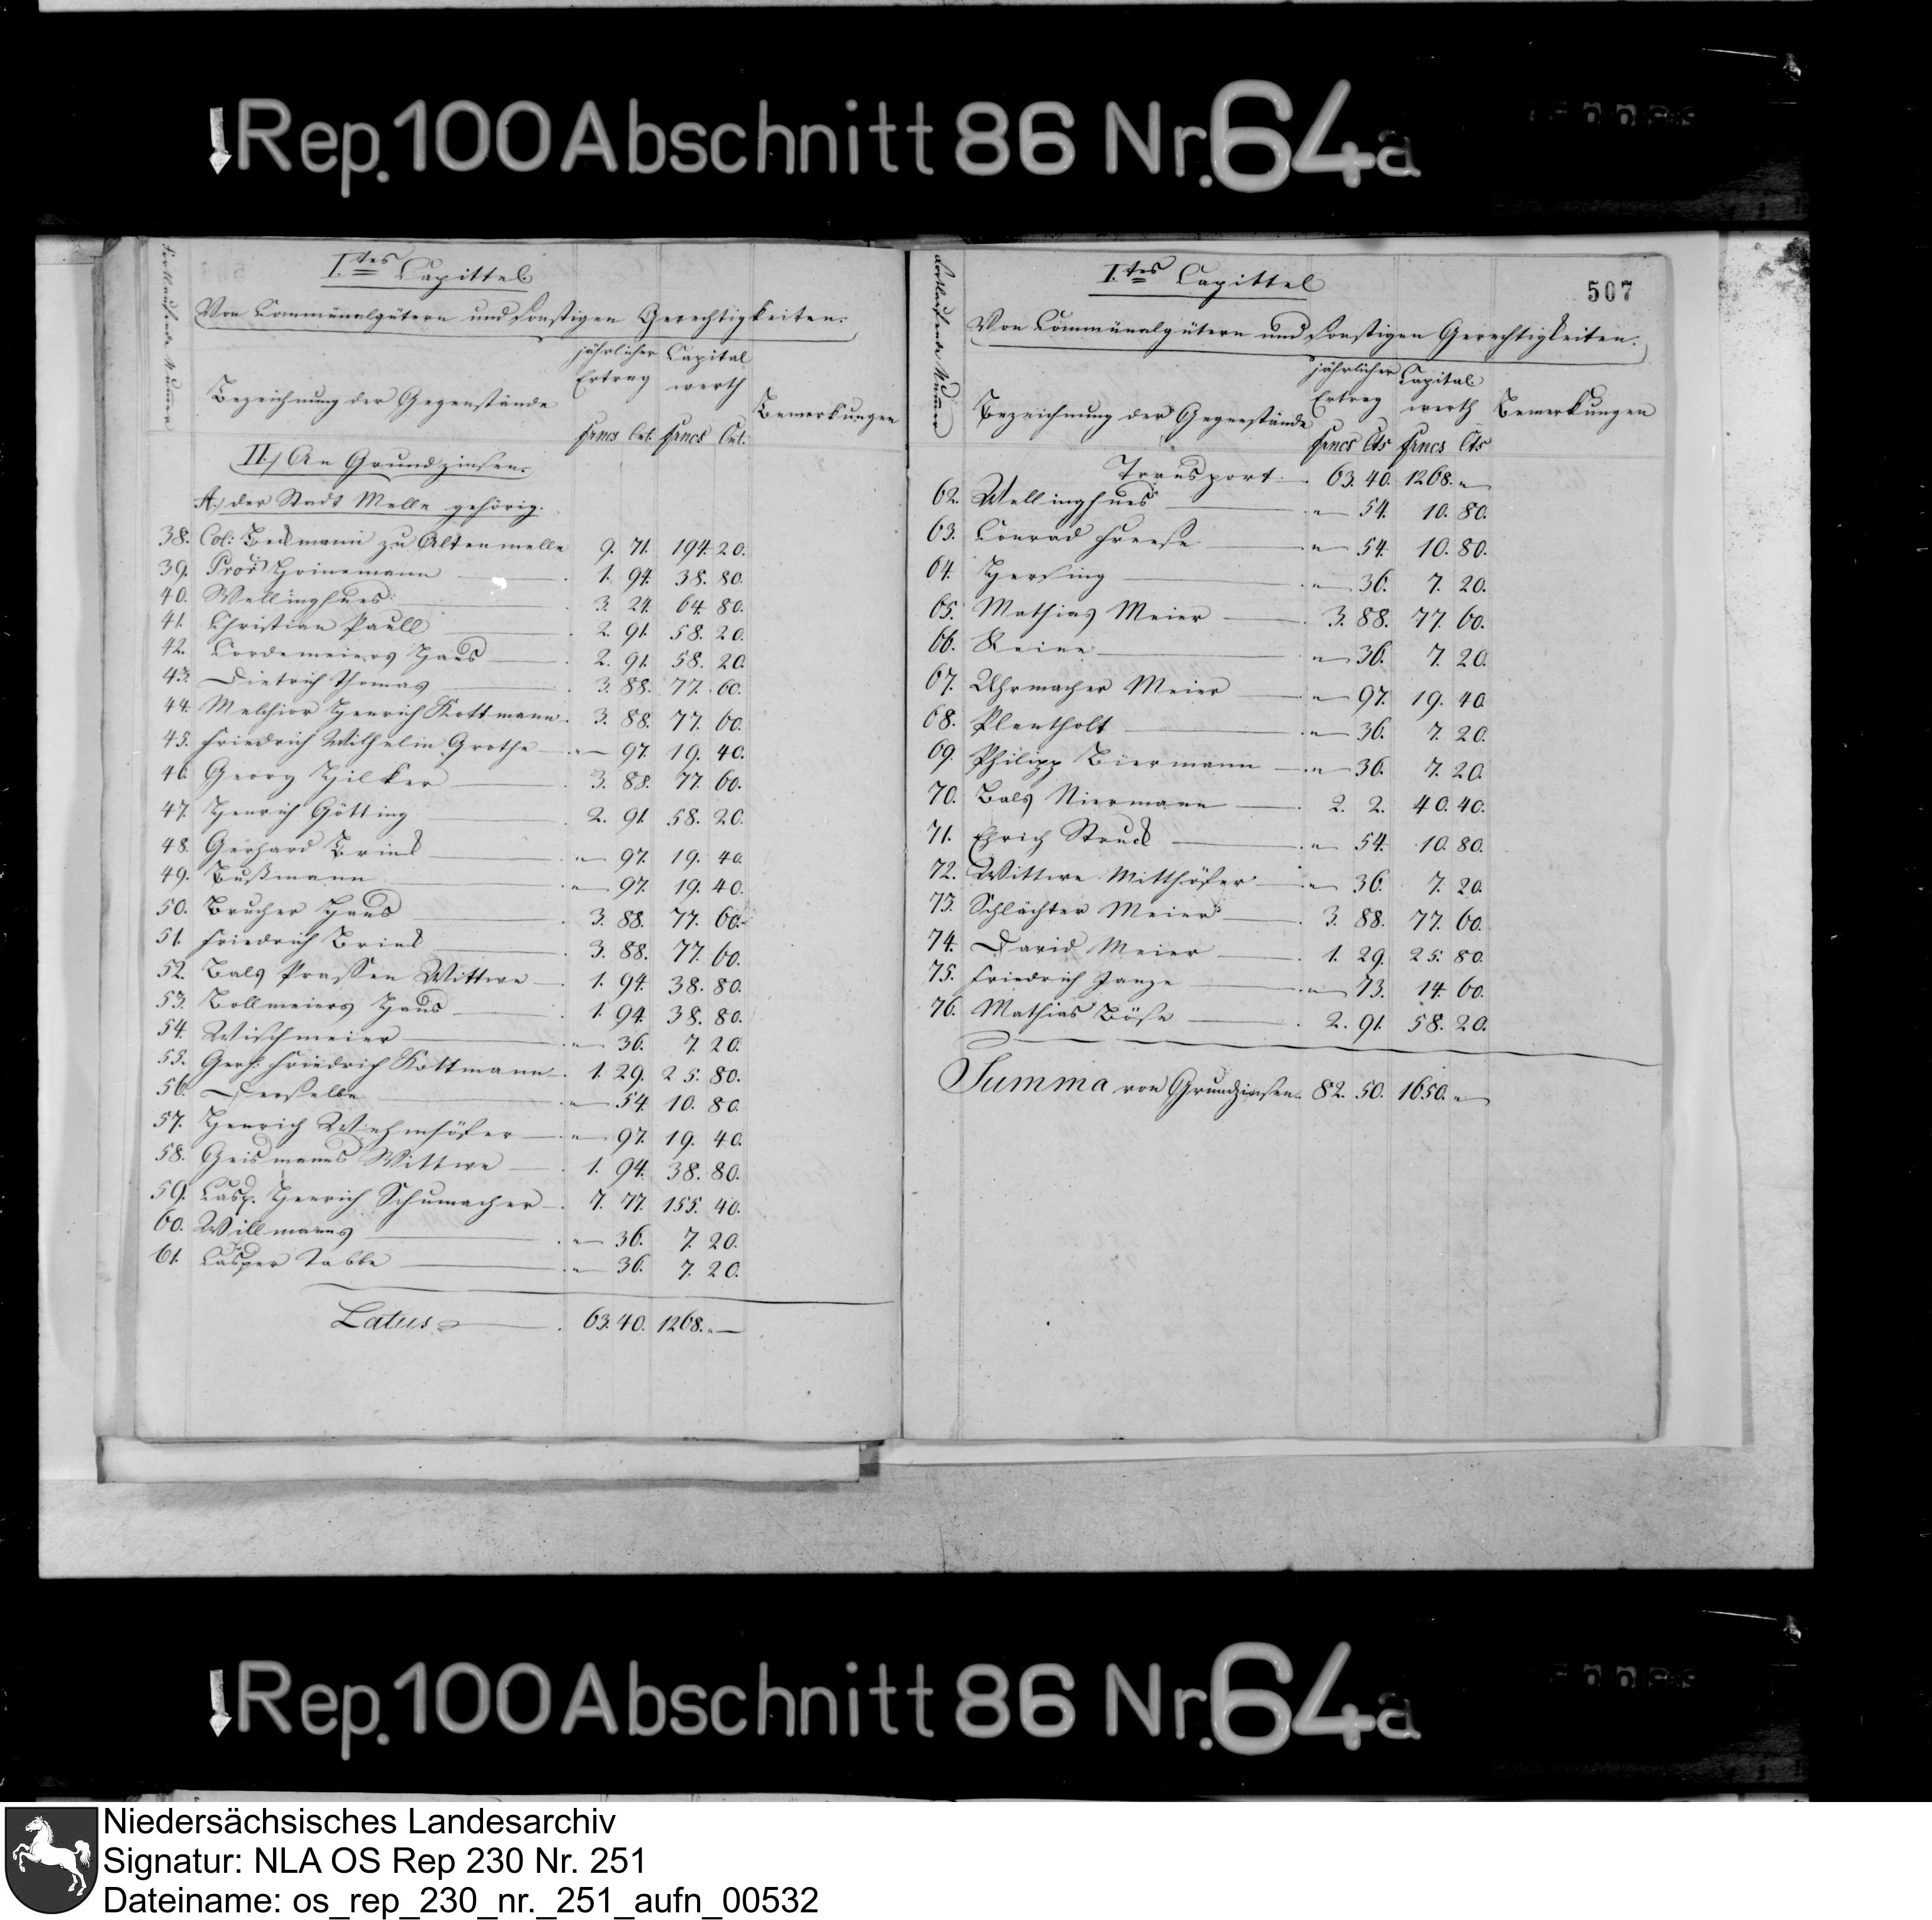 Rep. 100 Abschnitt 86 Nr. 64a
I.tes Capittel
Von Communalgütern und sonstigen Gerechtigkeiten.
Fortlaufende Numer
Bezeichnung der Gegenstände
jährlicher Ertrag
Capital werth
Bemerkungen
frncs Cnt. frncs Cnt.
II./ An Grundzinsen.
A.) der Stadt Melle gehörig.
38. Col: Beckmann zu Altenmelle 9. 71. 194. 20.
39. Pror Heinemann 1. 94. 38. 80.
40. Wellinghues 3. 24. 64. 80.
41. Christian Paull 2. 91. 58. 20.
42. Cordemeiers Haus 2. 91. 58. 20.
43. Dietrich Thomas 3. 88. 77. 60.
44. Melchior Henrich Kottmann. 3. 88. 77. 60.
45. Friedrich Wilhelm Grothe " 97. 19. 40.
46. Georg Hilker 3. 88. 77. 60.
47. Henrich Götting 2. 91. 58. 20.
48. Gerhard Brinck " 97. 19. 40.
49. Bußmann " 97. 19. 40.
50. Brucher Haus 3. 88. 77. 60.
51. Friedrich Brinck 3. 88. 77. 60.
52. Bals Prassen Wittwe 1. 94. 38. 80.
53. Bollmeiers Haus 1. 94. 38. 80.
54. Wischmeier " 36. 7. 20.
55. Gerh: Friedrich Kottmann 1. 29. 25. 80.
56. Derselbe " 54. 10. 80.
57. Henrich Wiehmhöfer " 97. 19. 40.
58. Geismanns Wittwe 1. 94. 38. 80.
59. Casp. Henrich Schumacher 7. 77. 155. 40.
60. Willmanns " 36. 7. 20.
61. Casper Tabbe " 36. 7. 20.
Latus 63. 40. 1268. "
507
I.tes Capittel
Von Communalgütern und sonstigen Gerechtigkeiten.
Fortlaufende Numer
Bezeichnung der Gegenstände
jährlicher Ertrag
Capital werth
Bemerkungen
frncs Cts frncs Cts
Transport. 63. 40. 1268. "
62. Wellinghues " 54. 10. 80.
63. Conrad Freese " 54. 10. 80.
64. Hersing " 36. 7. 20.
65. Mathias Meier 3. 88. 77. 60.
66. Keine " 36. 7. 20.
67. Uhrmacher Meier " 97. 19. 40.
68. Plentholt " 36. 7. 20.
69. Philipp Biermann " 36. 7. 20.
70. Bals Niermann 2. 2. 40. 40.
71. Ehrich Struck " 54. 10. 80.
72. Wittwe Mitthöfer " 36. 7. 20.
73. Schlächter Meier 3. 88. 77. 60.
74. David Meier 1. 29. 25. 80.
75. Friedrich Janze " 73. 14. 60.
76. Mathias Böse 2. 91. 58. 20.
Summa von Grundzinsen. 82. 50. 1650. "
Rep. 100 Abschnitt 86 Nr. 64a
Niedersächsisches Landesarchiv
Signatur: NLA OS Rep 230 Nr. 251
Dateiname: os_rep_230_nr._251_aufn_00532